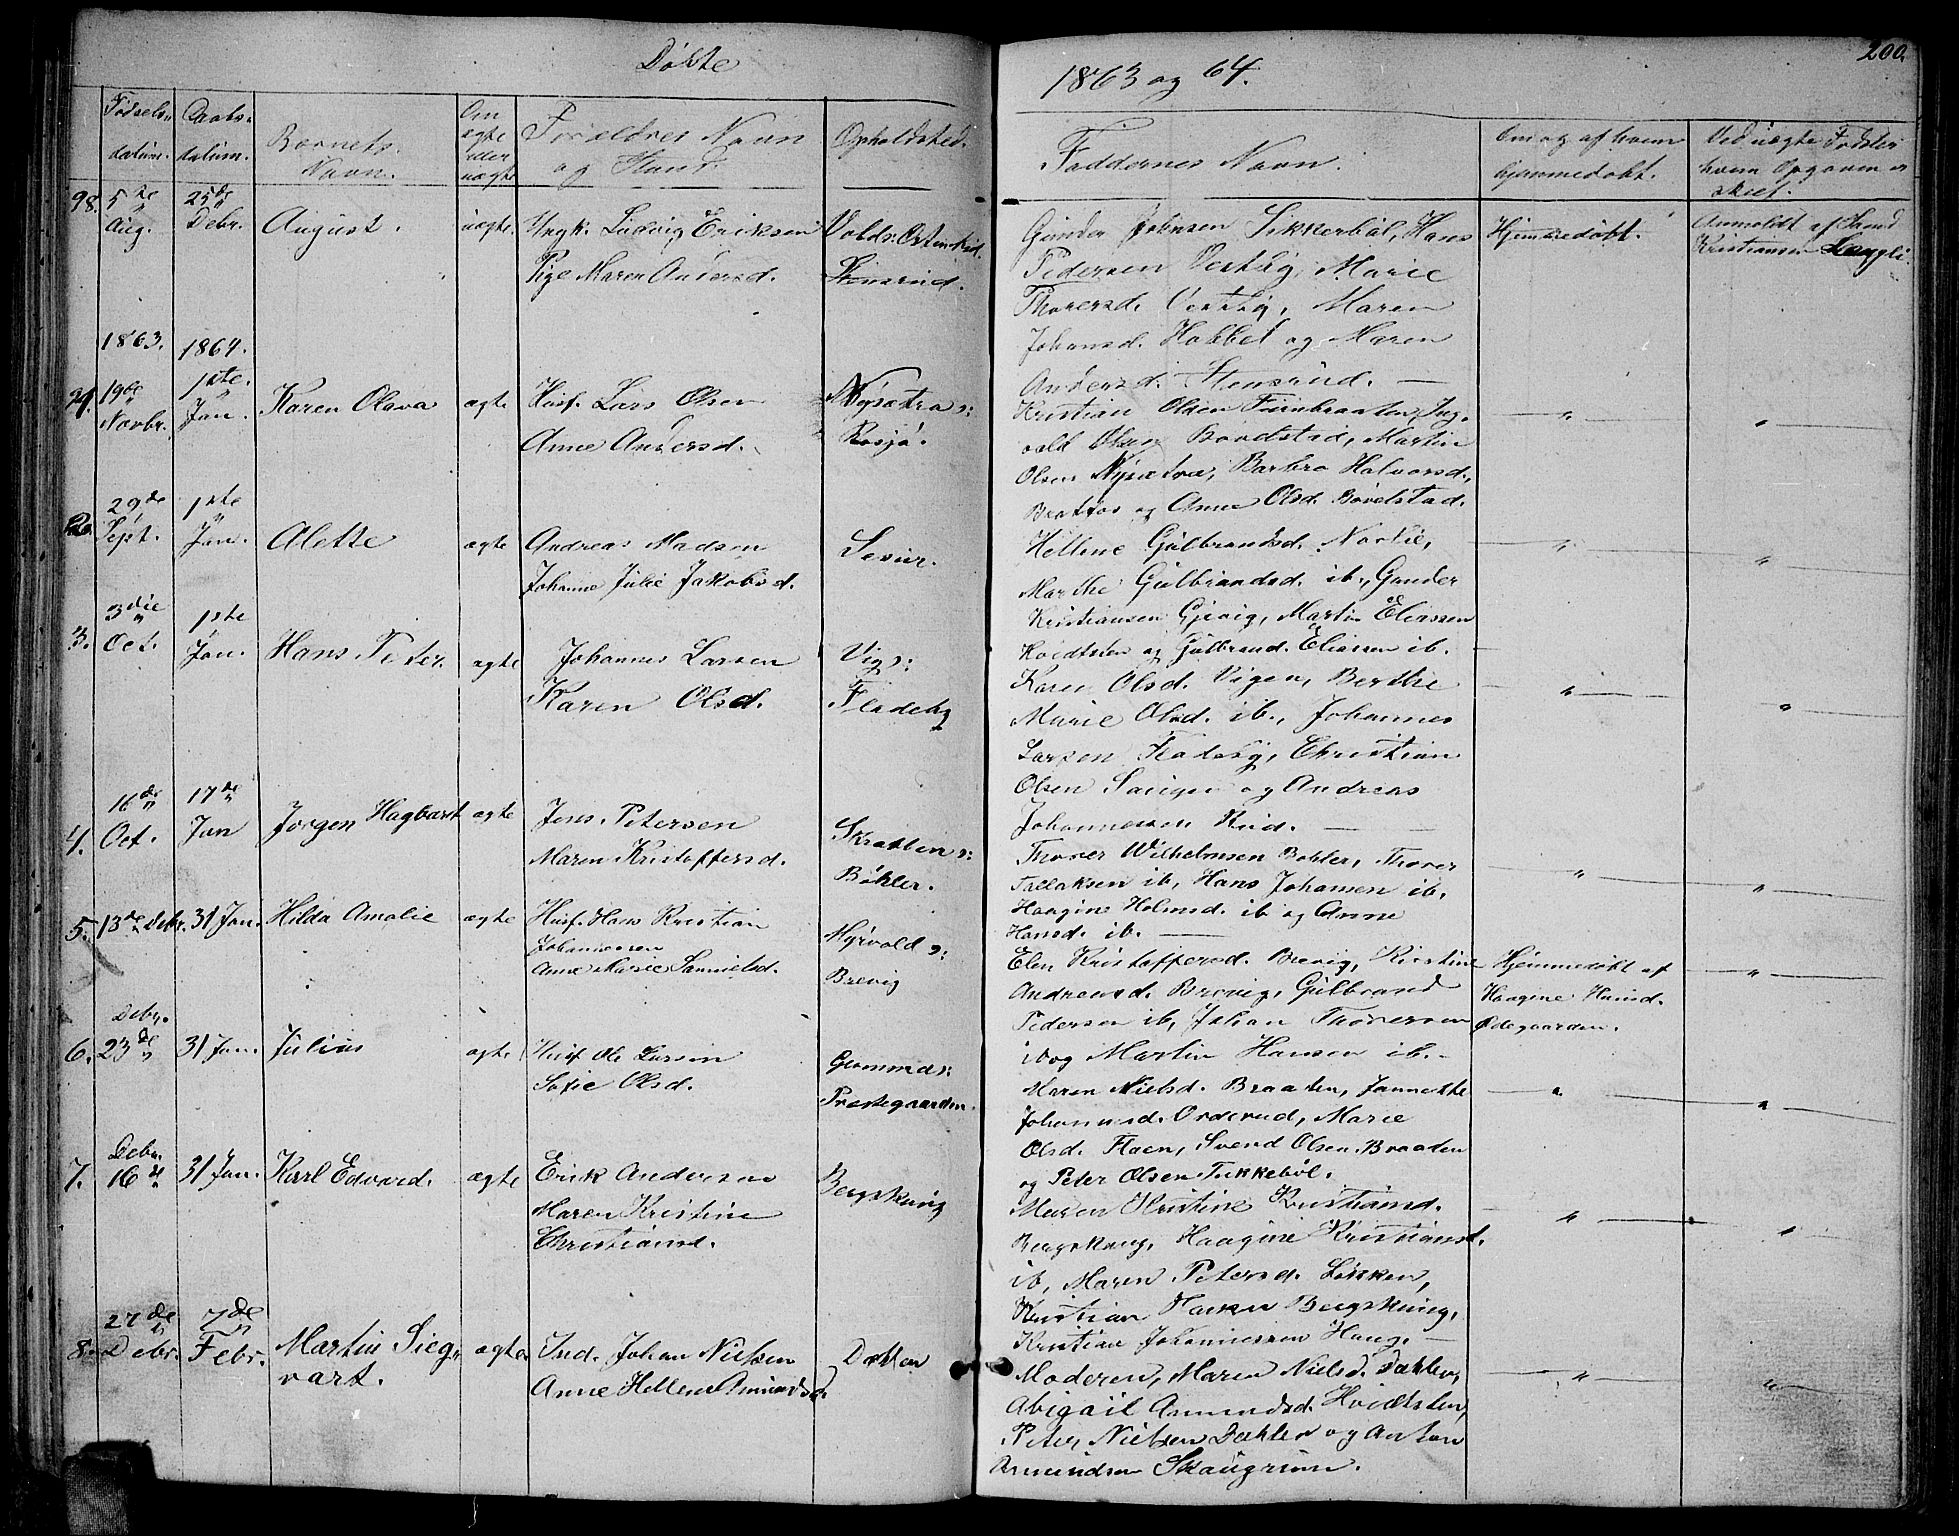 Døbte
1863 og 64.
200.
Fødsels-
datum.
Daabs-
datum.
Barnets
Navn.
Om
ægte
eller
uægte
Forældres Navn
og Stand.
Opholdsted.
Faddernes Navn.
Om og af hvem
hjemmedøbt.
Ved uægte Fødsler
hvem Opgaven er
skeet.
98. 5te Aug.
25de Debr.
August.
uægte.
Ungk. Ludvig Eriksen
Pige Maren Andersd.
Gunder Johnsen Sikkerbøl, Hans
Pedersen Vestby, Marie
Thorersd. Vestby, Maren
Johansd. Hobbel og Maren
Andersd. Stensrud. —
Hjemmedøbt.
Anmeldt af
Kristiansen Langli.
1863.
1864.
19de Novbr.
1ste Jan.
Karen Olava
ægte
Husf. Lars Olsen
Anne Andersd.
Nysætra s:
Rosjø.
Kristian Olsen
Olsen Bovelstad, Martin
Olsen Nysætra, Barbro Halvorsd.
og Anne Olsd. Bovelstad.
29de Sept.
1ste Jan.
Alette
ægte
Andreas Madsen
Johanne Julie Jakobsd.
Hellene Gulbrandsd. Nordlie,
Marthe Gulbrandsd. ib., Gunder
Kristiansen Gjevig, Martin Eliassen
Hvidtsten og Gulbrand. Eliassen ib.
3. 3die Oct.
1ste Jan.
Hans Peter.
ægte
Johannes Larsen
Karen Olsd.
Vig s:
Fladeby
Karen Olsd. Vigen, Berthe
Marie Olsd. ib., Johannes
Larsen Fladeby, Christian
Olsen og Andreas
Johannessen Rud.
4. 16de Oct.
17de Jan
Jørgen Hagbart
ægte
Jens Petersen
Maren Kristoffersd.
Skratten s:
Bøhler.
Thorer Wilhelmsen Bøhler, Thorer
Tallaksen ib, Hans Johansen ib.
Haagine Holmsd. ib og Anne
Hansd. ib.
5. 13de Debr.
31 Jan.
Hilda Amalie
ægte
Husf. Hans Kristian
Johannessen
Anne Marie Samuelsd.
Myrvold s:
Brevig
Elen Kristoffersd. Brevig, Kirstine
Andreasd. Brevig, Gulbrand
Pedersen ib, Johan Thoresen
ib og Martin Hansen ib.
Hjemmedøbt af
Haagine Hansd.
Ødegaarden.
6. Debr. 23de
31 Jan.
Julius
ægte
Husf Ole Larsen
Sofie Olsd.
Præstegaarden.
Maren Nielsd. Braaten, Jannekke
Johannesd. Orderud, Marie
Olsd. Flaen, Svend Olsen Braaten
og Peter Olsen Sikkebøl.
7. Debr. 16de
31 Jan.
Karl Edvard.
ægte
Erik Andersen
Maren Kristine
Christiansd.
Bergskaug
Maren Kristine Kristiansd.
Bergskaug, Haagine Kristiansd.
ib, Maren Petersd. Løkken,
Kristian Hansen Bergskaug,
Kristian Johannessen Haug. —
8. 27de Debr.
7de Febr.
Martin Sieg-
vart.
ægte
Ind. Johan Nielsen
Anne Hellene Amundsd.
Dæhlen
Moderen, Maren Nielsd. Dæhlen,
Abigail Asmundsd. Hvidtsten,
Peter Nielsen Dæhlen og Anton
Asmundsen Skaugrum.